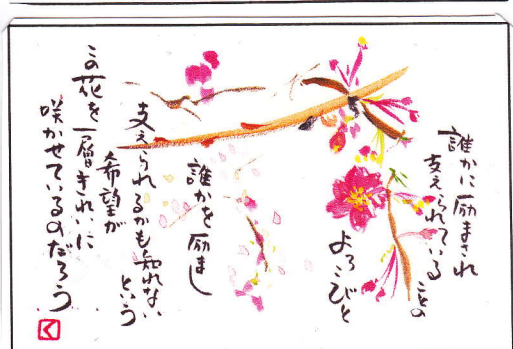 誰かに励まされ
支えられている ことの
よろこびと
誰かを励まし
支えられるかも知れない
という
希望が
この花を一層きれいに
咲かせているのだろう
く